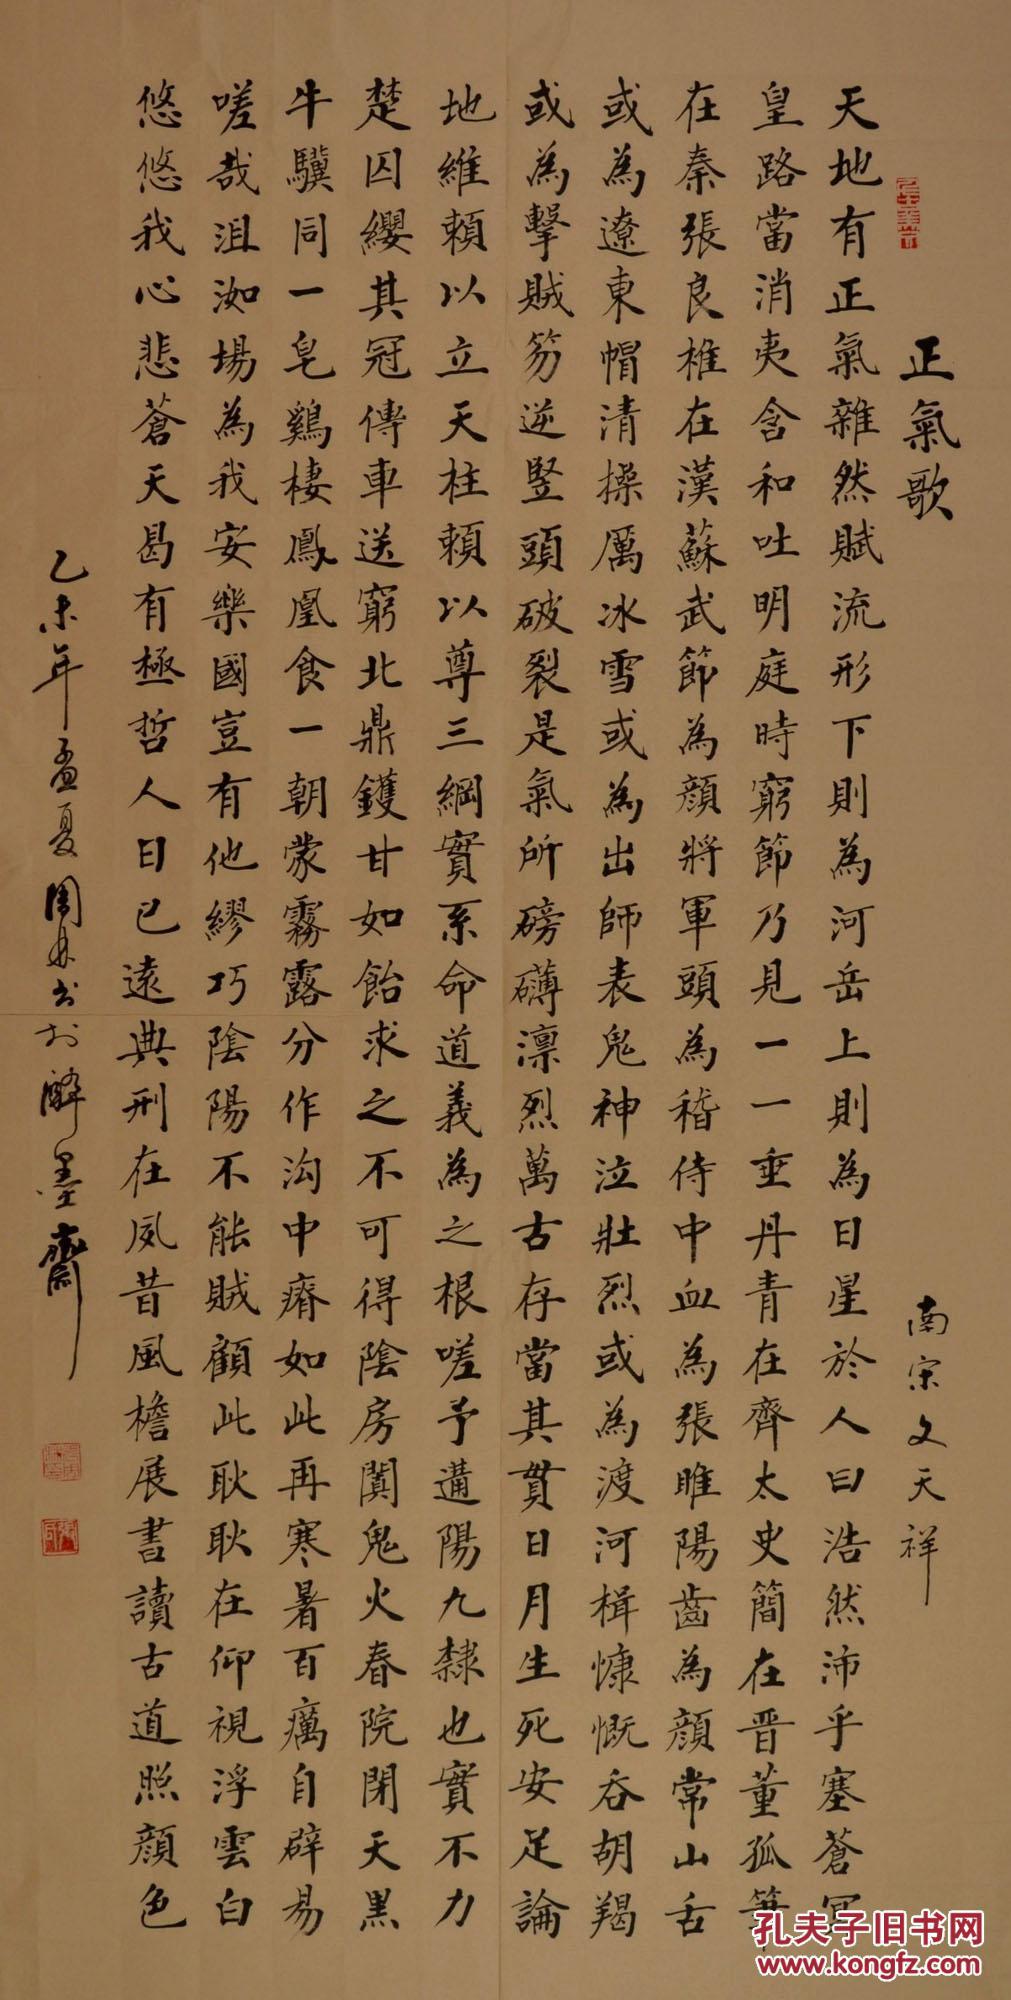 正氣歌 南宋文天祥
天地有正氣雜然賦流形下則為河岳上則為日星於人曰浩然沛乎塞蒼冥
皇路當消夷含和吐明庭時窮節乃見一一垂丹青在齊太史簡在晋董狐筆
在秦張良椎在漢蘇武節為顔將軍頭為稽侍中血為張睢陽齒為顔常山舌
或為遼東帽清操厲冰雪或為出師表鬼神泣壯烈或為渡河楫慷慨吞胡羯
或為擊賊笏逆豎頭破裂是氣所磅礴凛烈萬古存當其貫日月生死安足論
地維賴以立天柱賴以尊三綱實系命道義為之根嗟予遘陽九隸也實不力
楚囚纓其冠傳車送窮北鼎鑊甘如飴求之不可得陰房闃鬼火春院閉天黑
牛驥同一皂鷄棲鳳凰食一朝蒙霧露分作沟中瘠如此再寒暑百癘自辟易
嗟哉沮洳場為我安樂國豈有他繆巧陰陽不能賊顧此耿耿在仰視浮雲白
悠悠我心悲蒼天曷有極哲人日已遠典刑在夙昔風檐展書讀古道照顔色
乙未年孟夏周林书於醉墨齋
孔夫子旧书网
www.kongfz.com